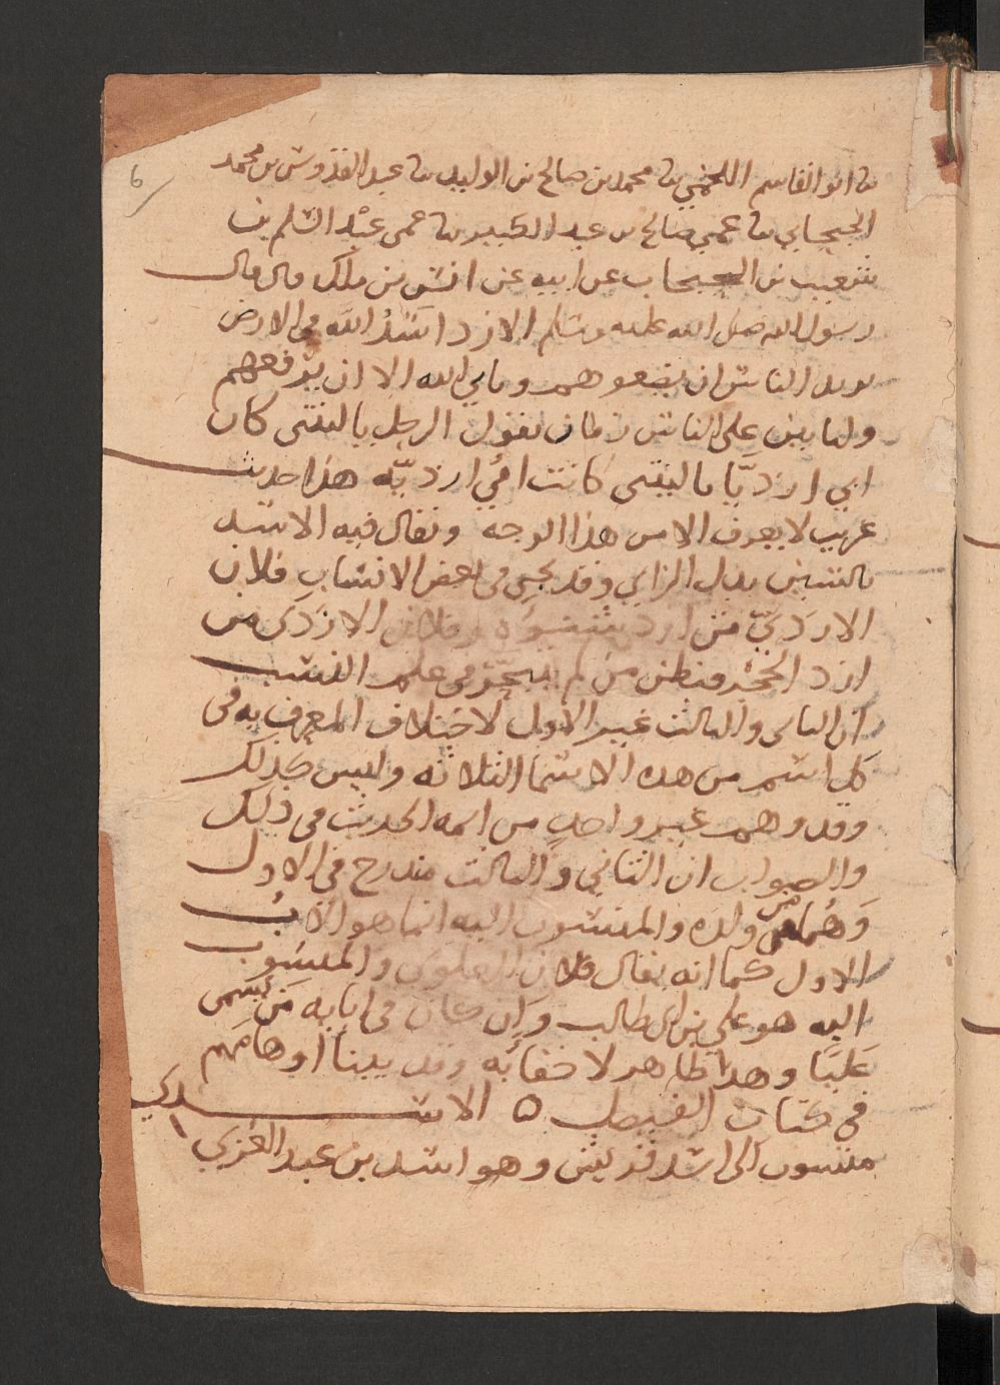 6
ثنا ابو القاسم اللخمي ثنا محمد بن صالح بن الوليد ثنا عبد القدوس بن محمد
الحبحابي ثنا عمي صالح بن عبد الكبير ثنا عمى عبد السلم بن
شعيب بن الحبحاب عن ابيه عن انس بن ملك قال قال
رسول الله صلى الله عليه وسلم الازد اسد الله في الارض
يريد الناس ان يضعوهم ويابي الله الا ان يرفعهم
وليا تين على الناس زمان يقول الرجل يا ليتنى كان
ابي ازديا يا ليتنى كانت امي ازديه هذا حديث
غريب لا يعرف الا من هذا الوجه ويقال فيه الاسد
بالسين بدل الزاي وقد يجي في بعض الانساب فلان
الازدي من ازد شنوه وفلان الازدى من
ازد الحجر فيظن من لم يتبحر في علم النسب
ان الثاني والثالث غير الاول لاختلاف المعرف به في
كل اسم من هذه الاسما الثلاثه وليس كذلك
وقد وهم غير واحد من ايمه الحديث في ذلك
والصواب ان الثاني والثالث مندرج في الاول
وهما من ولده والمنسوب اليه انما هو الاب
الاول كما انه يقال فلان العلوي والمنسوب
اليه هو علي بن ابي طالب وان كان في ابايه من يسمى
عليا وهذا ظاهر لا خفا به وقد بينا اوهامهم
في كتاب الفيصل ه الاسدي
منسوب الى اسد قريش وهو اسد بن عبد العزي